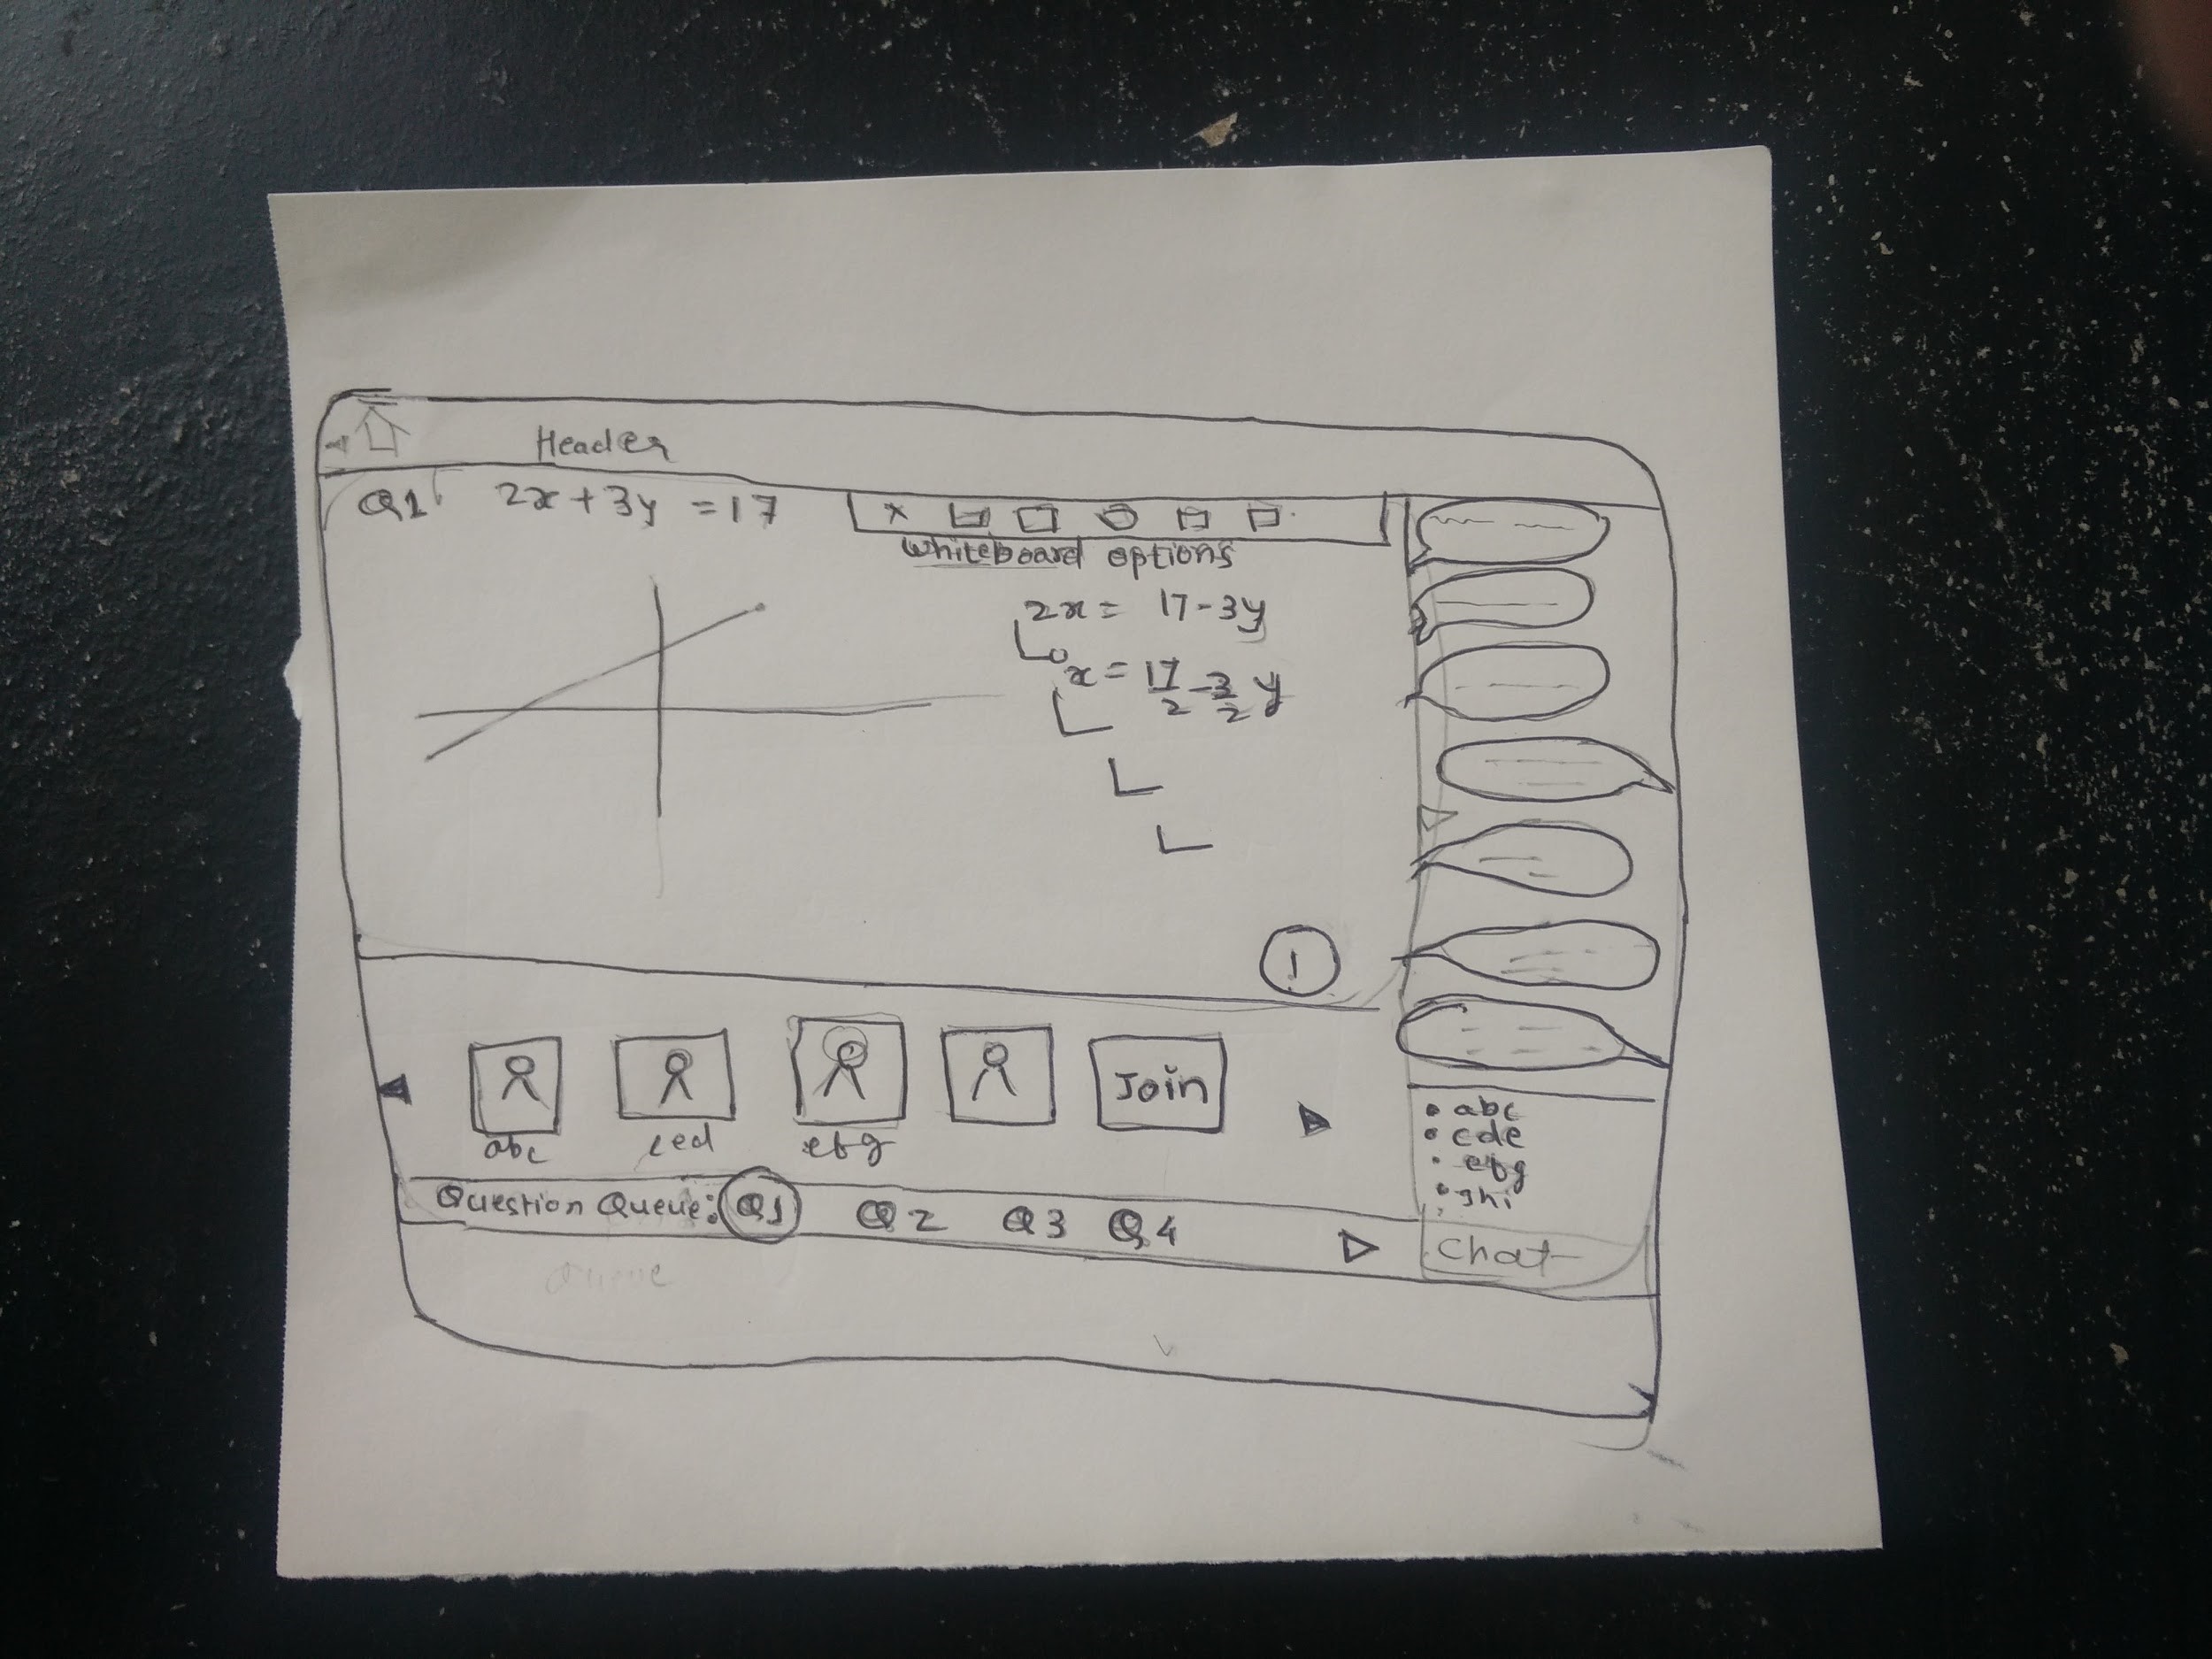 Header
Q1 2x + 3y = 17
Whiteboard options
2x = 17 - 3y
x = 17/2 - 3/2 y
!
Join
abc ced efg
Question Queue: Q1 Q2 Q3 Q4
abc
cde
efg
ghi
Chat